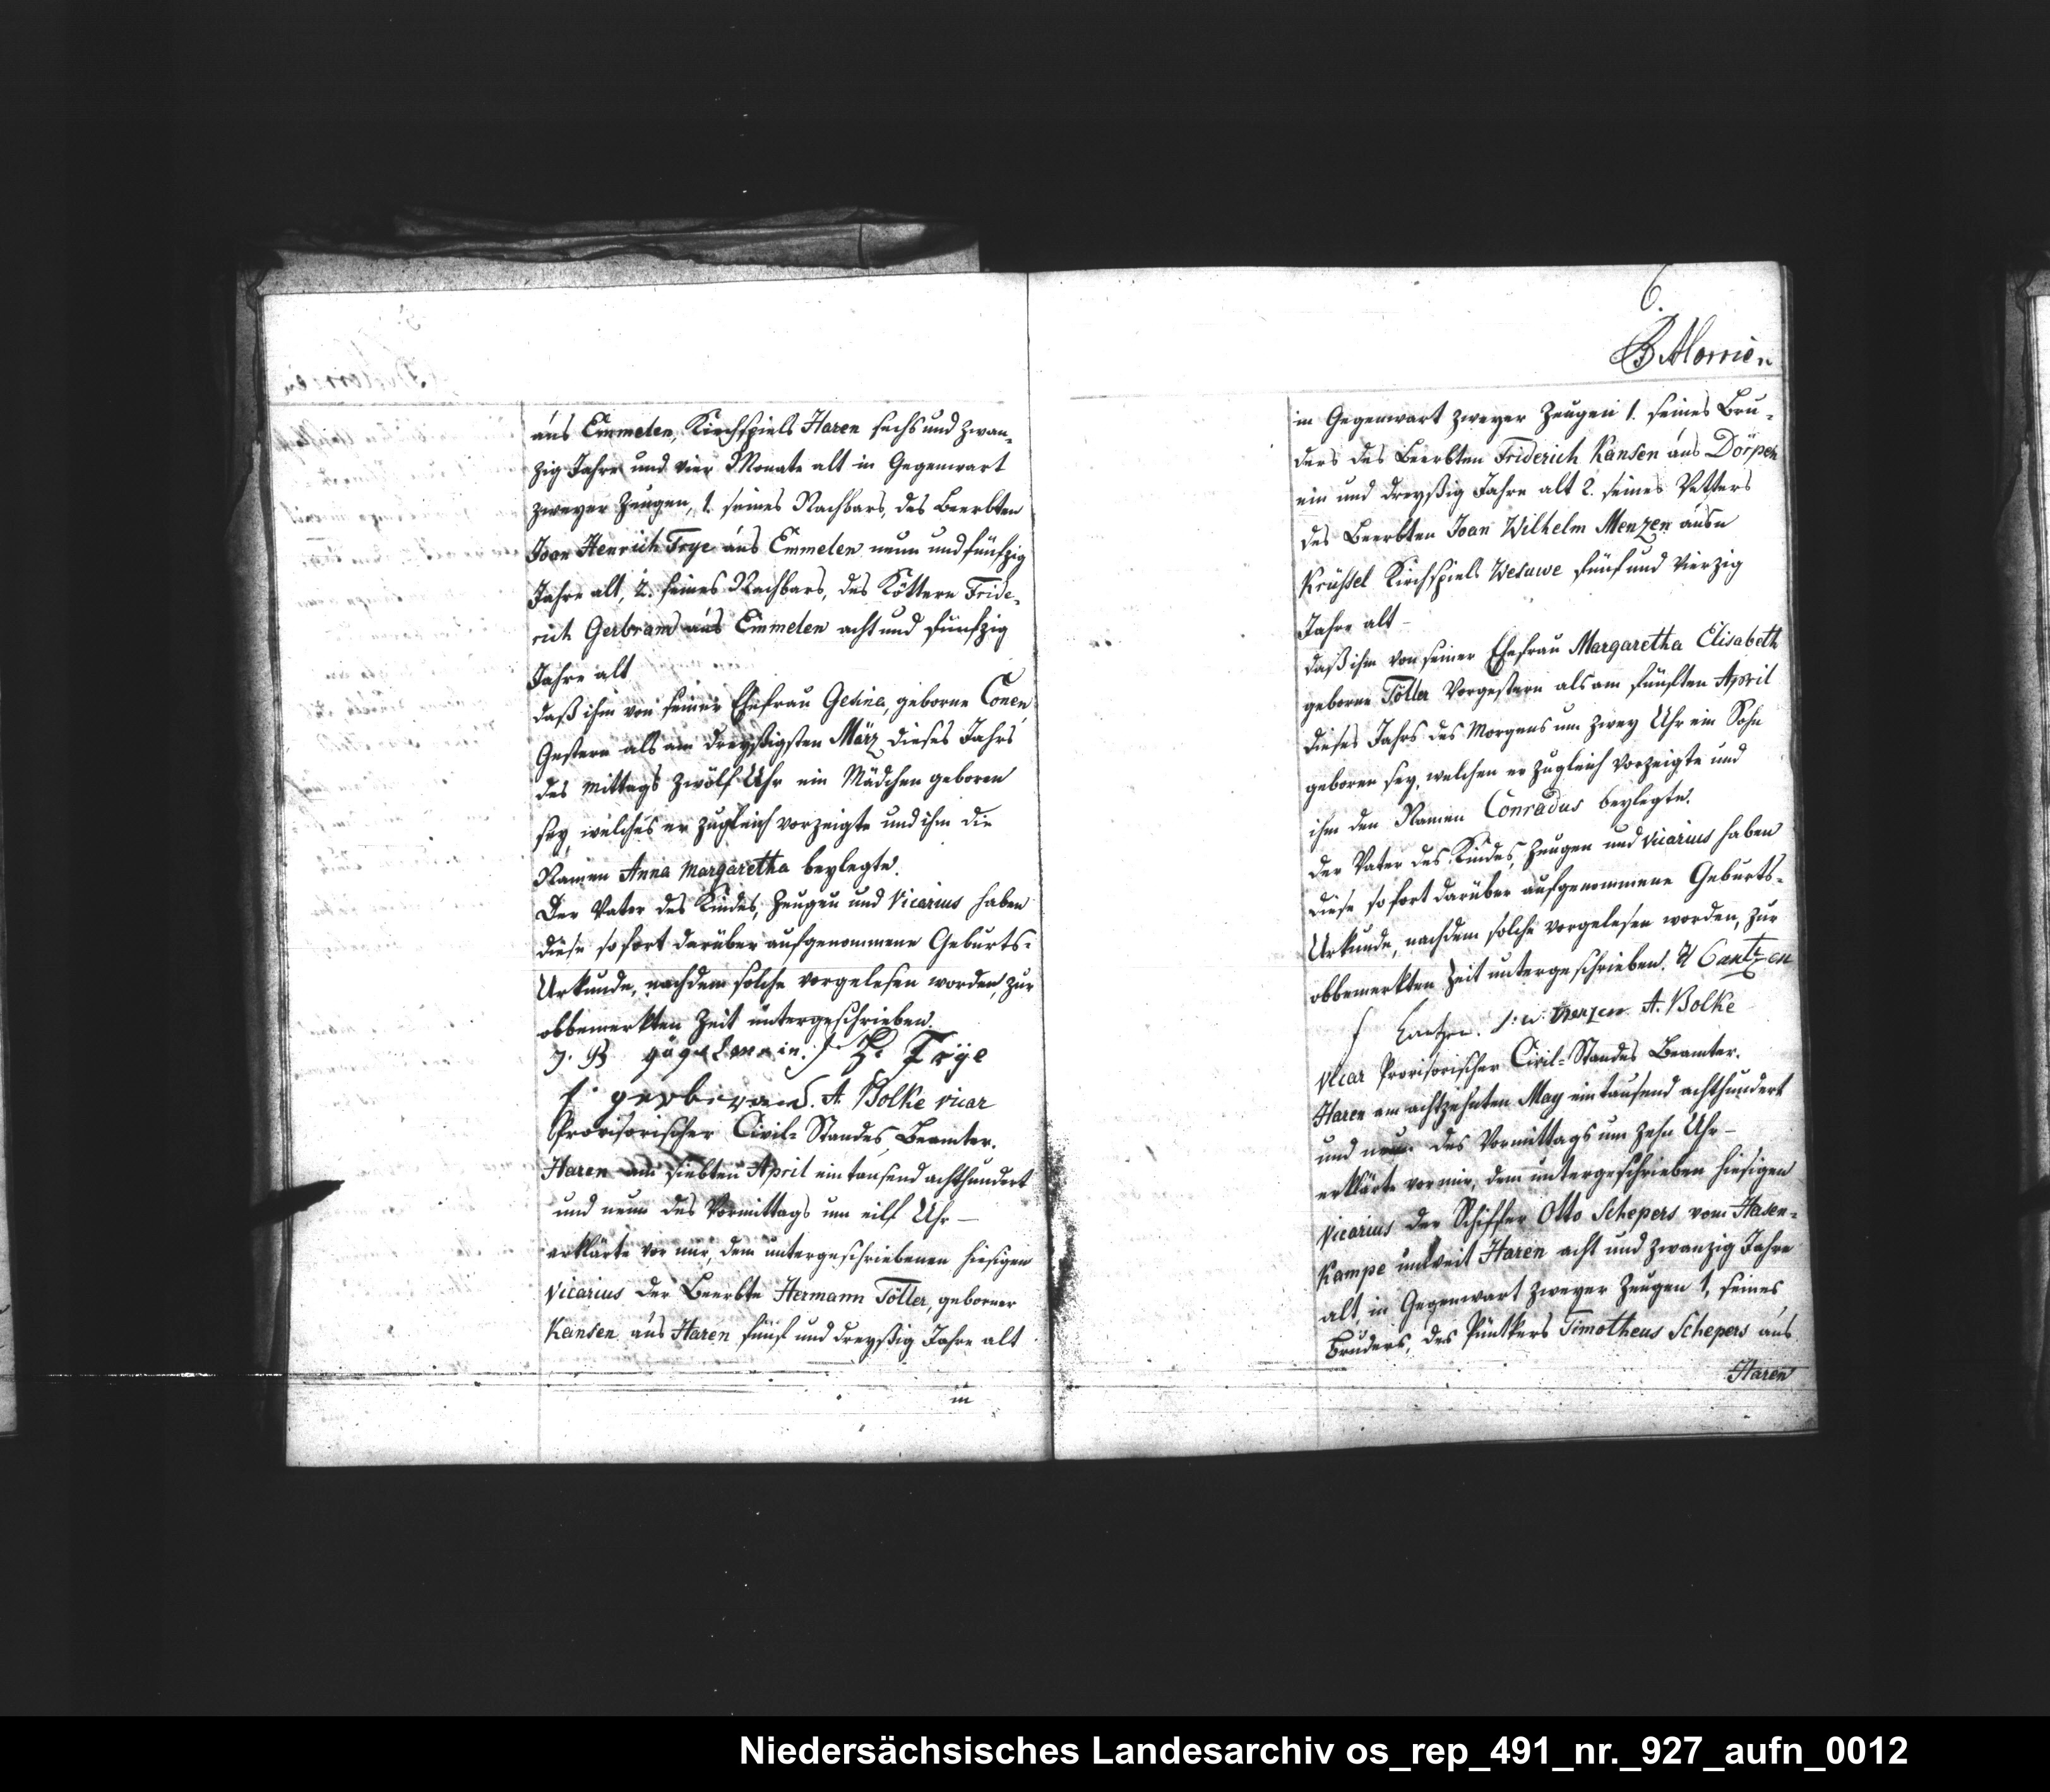 aus Emmelen, Kirchspiels Haren sechs und zwan-
zig Jahre und vier Monate alt in Gegenwart
zweyer Zeugen, 1. seines Nachbars, des Beerbten
Joan Henrich Trye aus Emmelen neun und fünfzig
Jahre alt, 2. seines Nachbars, des Köttern Fride-
rich Gerbrand aus Emmelen acht und fünfzig
Jahre alt
daß ihm von seiner Ehefrau Gesina, geborne Conen
Gestern als am dreyßigsten März dieses Jahrs
des Mittags zwölf Uhr ein Mädchen geboren
sey, welches er zugleich vorzeigte und ihm die
Namen Anna Margaretha beylegte.
Der Vater des Kindes, Zeugen und Vicarius haben
diese sofort darüber aufgenommene Geburts-
Urkunde, nachdem solche vorgelesen worden, zur
obbemerkten Zeit untergeschrieben.
J. B H. Trye
f gerbrand. A. Bolke vicar
Provisorischer Civil-Standes Beamter.
Haren am siebten April ein tausend achthundert
und neun des Vormittags um eilf Uhr –
erklärte vor mir, dem untergeschriebenen hiesigen
Vicarius der Beerbte Hermann Töller, geborner
Kansen aus Haren fünf und dreyßig Jahre alt
in
6.
in Gegenwart zweyer Zeugen 1. seines Bru-
ders des Beerbten Friderich Kansen aus Dörpen
ein und dreyßig Jahre alt 2. seines Vetters
des Beerbten Joan Wilhelm Menzen aus
Krüssel Kirchspiels Wesuwe fünf und vierzig
Jahre alt –
daß ihm von seiner Ehefrau Margaretha Elisabeth
geborne Töller Vorgestern als am fünften April
dieses Jahrs des Morgens um zwey Uhr ein Sohn
geboren sey, welchen er zugleich vorzeigte und
ihm den Namen Conradus beylegte.
Der Vater des Kindes, Zeugen und Vicarius haben
diese sofort darüber aufgenommene Geburts-
Urkunde, nachdem solche vorgelesen worden, zur
obbemerkten Zeit untergeschrieben. H Cantzen
f Cantzen. J. W. Menzen A. Bolke
Vicar Provisorischer Civil-Standes Beamter.
Haren am achtzehnten May ein tausend achthundert
und neun des Vormittags um zehn Uhr –
erklärte vor mir, dem untergeschrieben hiesigen
Vicarius der Schiffer Otto Schepers vom Hasen-
Kampe unweit Haren acht und zwanzig Jahre
alt, in Gegenwart zweyer Zeugen 1, seines
Bruders, des Püntkers Timotheus Schepers aus
Haren
Niedersächsisches Landesarchiv os_rep_491_nr._927_aufn_0012